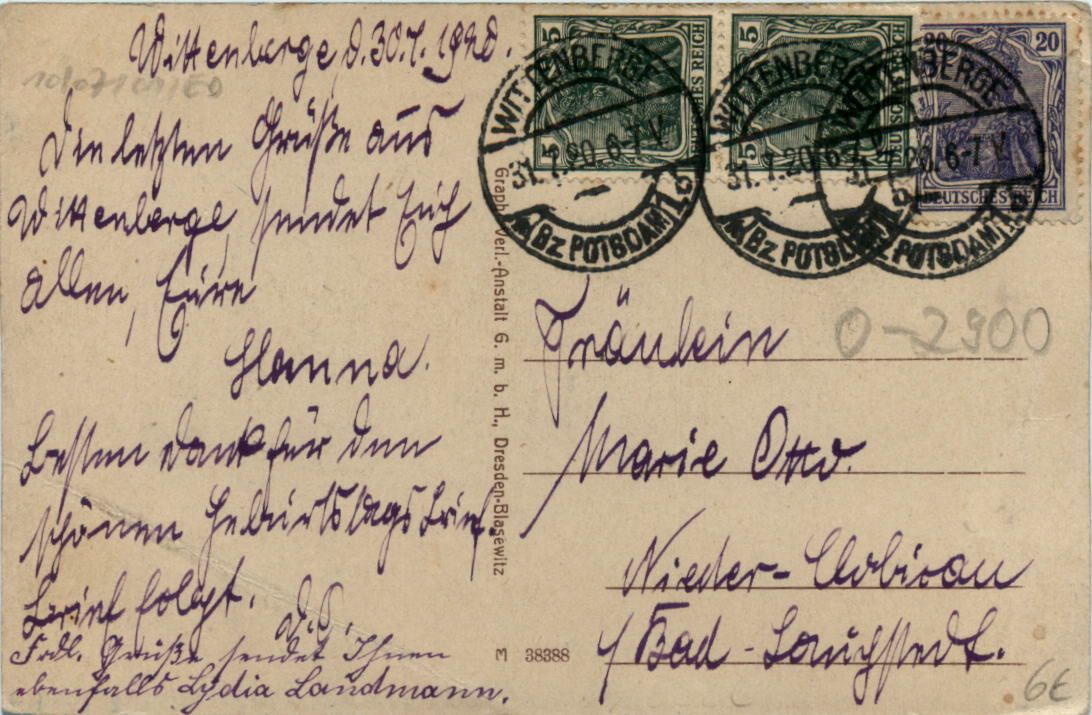 Wittenberge, d. 30.7. 1920.
Die letzten Grüße aus
Wittenberge, sendet Euch
allen, Eure
Hanna.
Besten Dank für den
schönen Geburtstagsbrief.
Brief folgt.
D.O.
Frdl. Grüße sendet Ihnen
ebenfalls Lydia Landmann.
Graph. Verl.-Anstalt G. m. b. H., Dresden-Blasewitz
5 DEUTSCHES REICH 5
5 DEUTSCHES REICH 5
20 20
DEUTSCHES REICH
WITTENBERGE
31.7.20. 6-7 V.
* (Bz POTSDAM) 1 b
WITTENBERGE
31.7.20. 6-7 V.
* (Bz POTSDAM) 1 b
WITTENBERGE
31.7.20. 6-7 V.
* (Bz POTSDAM) 1 b
0-2900
Fräulein
Marie Otto.
Nieder-Clobicau
b/Bad-Lauchstedt.
38388
6€